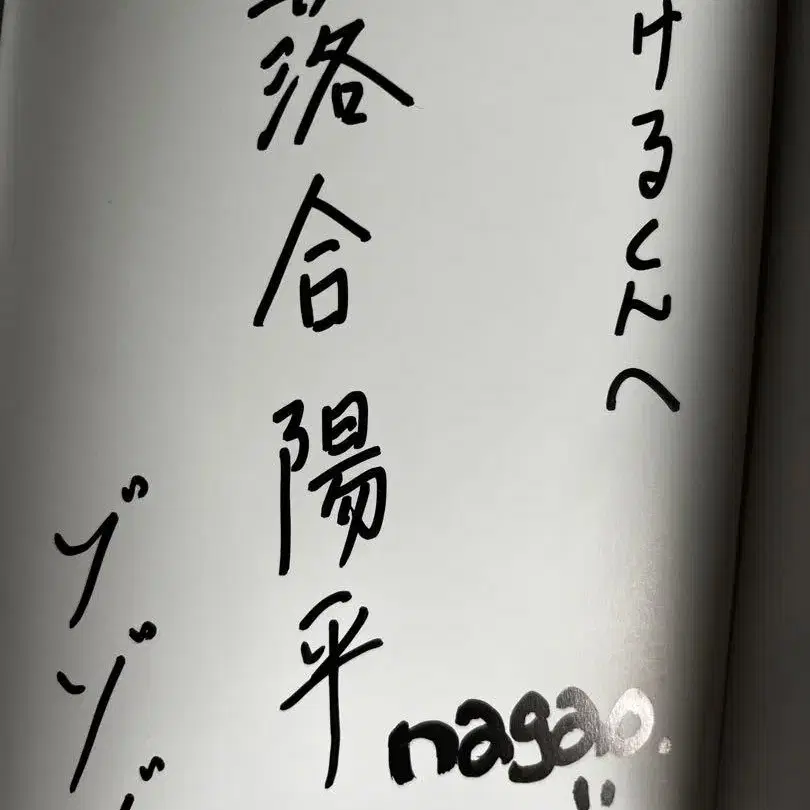 けるくんへ
落合陽平
ゾゾ
nagao.